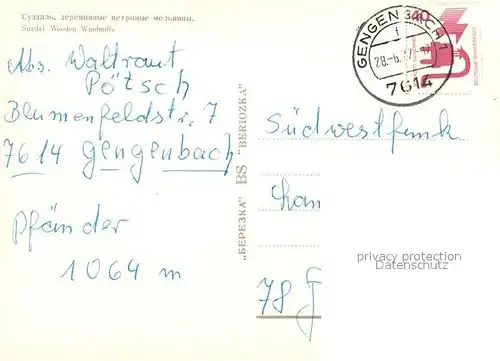 Суздаль, деревянные ветряные мельницы.
Suzdal Wooden Windmills.
Abs. Waltraut
Pötsch
Blumenfeldstr. 7
7614 Gengenbach
Pfänder
1064 m
"БЕРЕЗКА" BS "BERIOZKA"
GENGENBACH 1
28.-6.
7614
40
DEUTSCHE BUNDESPOST
Südwestfunk
78
privacy protection
Datenschutz